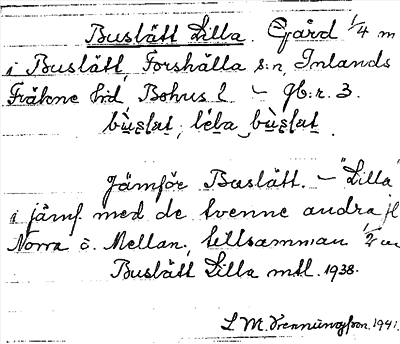 Buslätt Lilla. Gård 1/4 m
i Buslätt, Forshälla s:n, Inlands
Fräkne hd, Bohus l – gb:r. 3.
bu̇slat, léla bu̇slat
Jämför Buslätt. – "Lilla"
i jämf. med de tvenne andra, jf
Norra o. Mellan, tillsamman 1/2 m
Buslätt Lilla mtl. 1938.
L M. 1941.